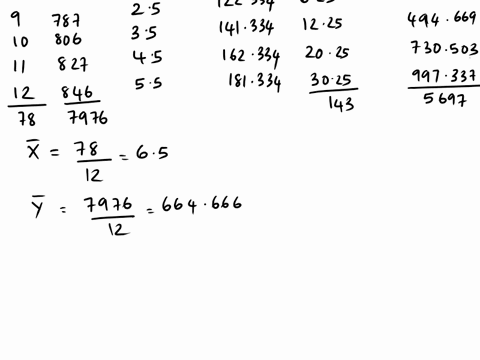 9 787 2.5 494.669
10 806 3.5 141.334 12.25 730.503
11 827 4.5 162.334 20.25 997.337
12 846 5.5 181.334 30.25 5697
78 7976 143
X̄ = 78 / 12 = 6.5
Ȳ = 7976 / 12 = 664.666